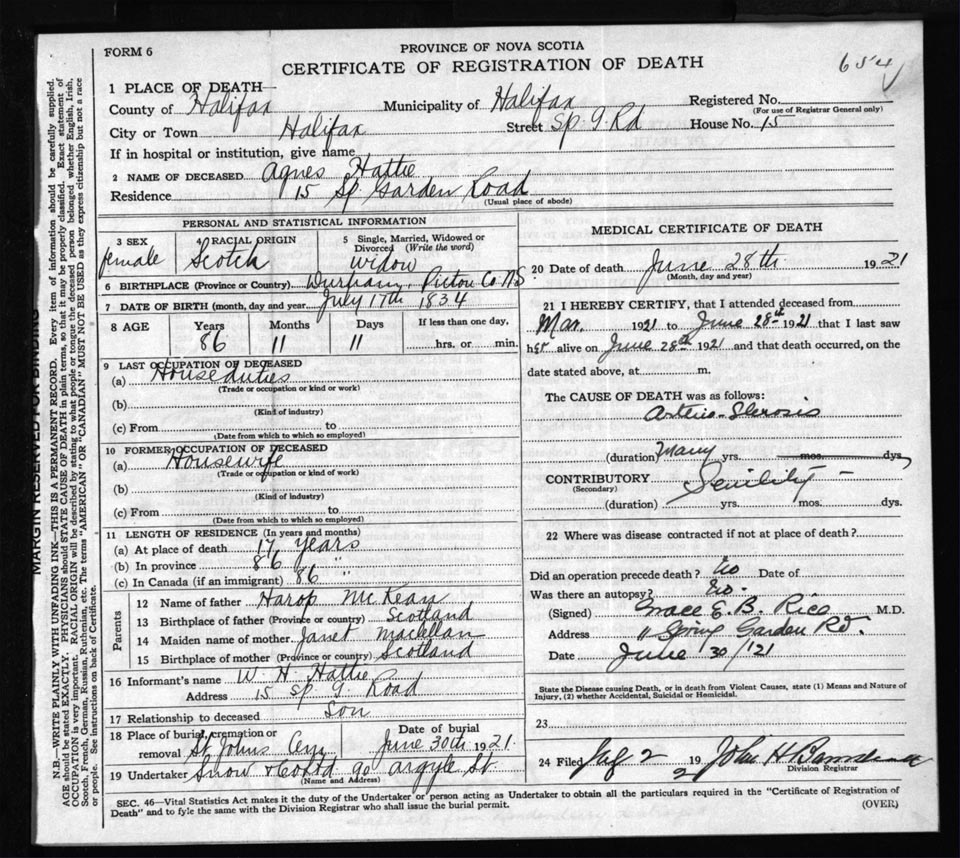 FORM 6
PROVINCE OF NOVA SCOTIA
CERTIFICATE OF REGISTRATION OF DEATH
654
1 PLACE OF DEATH—
County of Halifax Municipality of Halifax Registered No.
(For use of Registrar General only)
City or Town Halifax Street Sp. G. Rd House No. 15
If in hospital or institution, give name
2 NAME OF DECEASED Agnes Hattie
Residence 15 Sp Garden Road
(Usual place of abode)
PERSONAL AND STATISTICAL INFORMATION
3 SEX female
4 RACIAL ORIGIN Scotch
5 Single, Married, Widowed or Divorced (Write the word) Widow
6 BIRTHPLACE (Province or Country) Durham, Pictou Co NS
7 DATE OF BIRTH (month, day and year) July 17th 1834
8 AGE Years Months Days If less than one day,
86 11 11 hrs. or min.
9 LAST OCCUPATION OF DECEASED
(a) House duties
(Trade or occupation or kind or work)
(b)
(Kind of industry)
(c) From to
(Date from which to which so employed)
10 FORMER OCCUPATION OF DECEASED
(a) Housewife
(Trade or occupation or kind or work)
(b)
(Kind of industry)
(c) From to
(Date from which to which so employed)
11 LENGTH OF RESIDENCE (In years and months)
(a) At place of death 17 years
(b) In province 86 "
(c) In Canada (if an immigrant) 86 "
Parents
12 Name of father Harop McKean
13 Birthplace of father (Province or country) Scotland
14 Maiden name of mother Janet Maclellan
15 Birthplace of mother (Province or country) Scotland
16 Informant's name W. H. Hattie
Address 15 Sp G. Road
17 Relationship to deceased Son
18 Place of burial, cremation or removal St Johns Cem Date of burial June 30th 1921.
19 Undertaker Snow & Co Ltd 90 Argyle St.
(Name and Address)
MEDICAL CERTIFICATE OF DEATH
20 Date of death June 28th 1921
(Month, day and year)
21 I HEREBY CERTIFY, that I attended deceased from
Mar. 1921 to June 28th 1921 that I last saw
her alive on June 28th 1921 and that death occurred, on the
date stated above, at m.
The CAUSE OF DEATH was as follows:
Arterio-Sclerosis
(duration) Many yrs. mos. dys.
CONTRIBUTORY Senility
(Secondary)
(duration) yrs. mos. dys.
22 Where was disease contracted if not at place of death?
Did an operation precede death? No Date of
Was there an autopsy? No.
(Signed) Grace E. B. Rice M.D.
Address Spring Garden Rd.
Date June 30/21
State the Disease causing Death, or in death from Violent Causes, state (1) Means and Nature of
Injury, (2) whether Accidental, Suicidal or Homicidal.
23
24 Filed July 2 192 John H Barnstead
Division Registrar
SEC. 46—Vital Statistics Act makes it the duty of the Undertaker or person acting as Undertaker to obtain all the particulars required in the "Certificate of Registration of
Death" and to fyle the same with the Division Registrar who shall issue the burial permit.
(OVER)
MARGIN RESERVED FOR BINDING
N.B.—WRITE PLAINLY WITH UNFADING INK—THIS IS A PERMANENT RECORD. Every item of information should be carefully supplied.
AGE should be stated EXACTLY. PHYSICIANS should STATE CAUSE OF DEATH in plain terms, so that it may be properly classified. Exact statement of
OCCUPATION is very important. RACIAL ORIGIN will be described by stating to what people or tongue the deceased person belonged whether English, Irish,
Scotch, French, German, Russian, Ruthenian, etc. The terms "AMERICAN" OR "CANADIAN" MUST NOT BE USED as they express citizenship but not a race
or people. See instructions on back of Certificate.